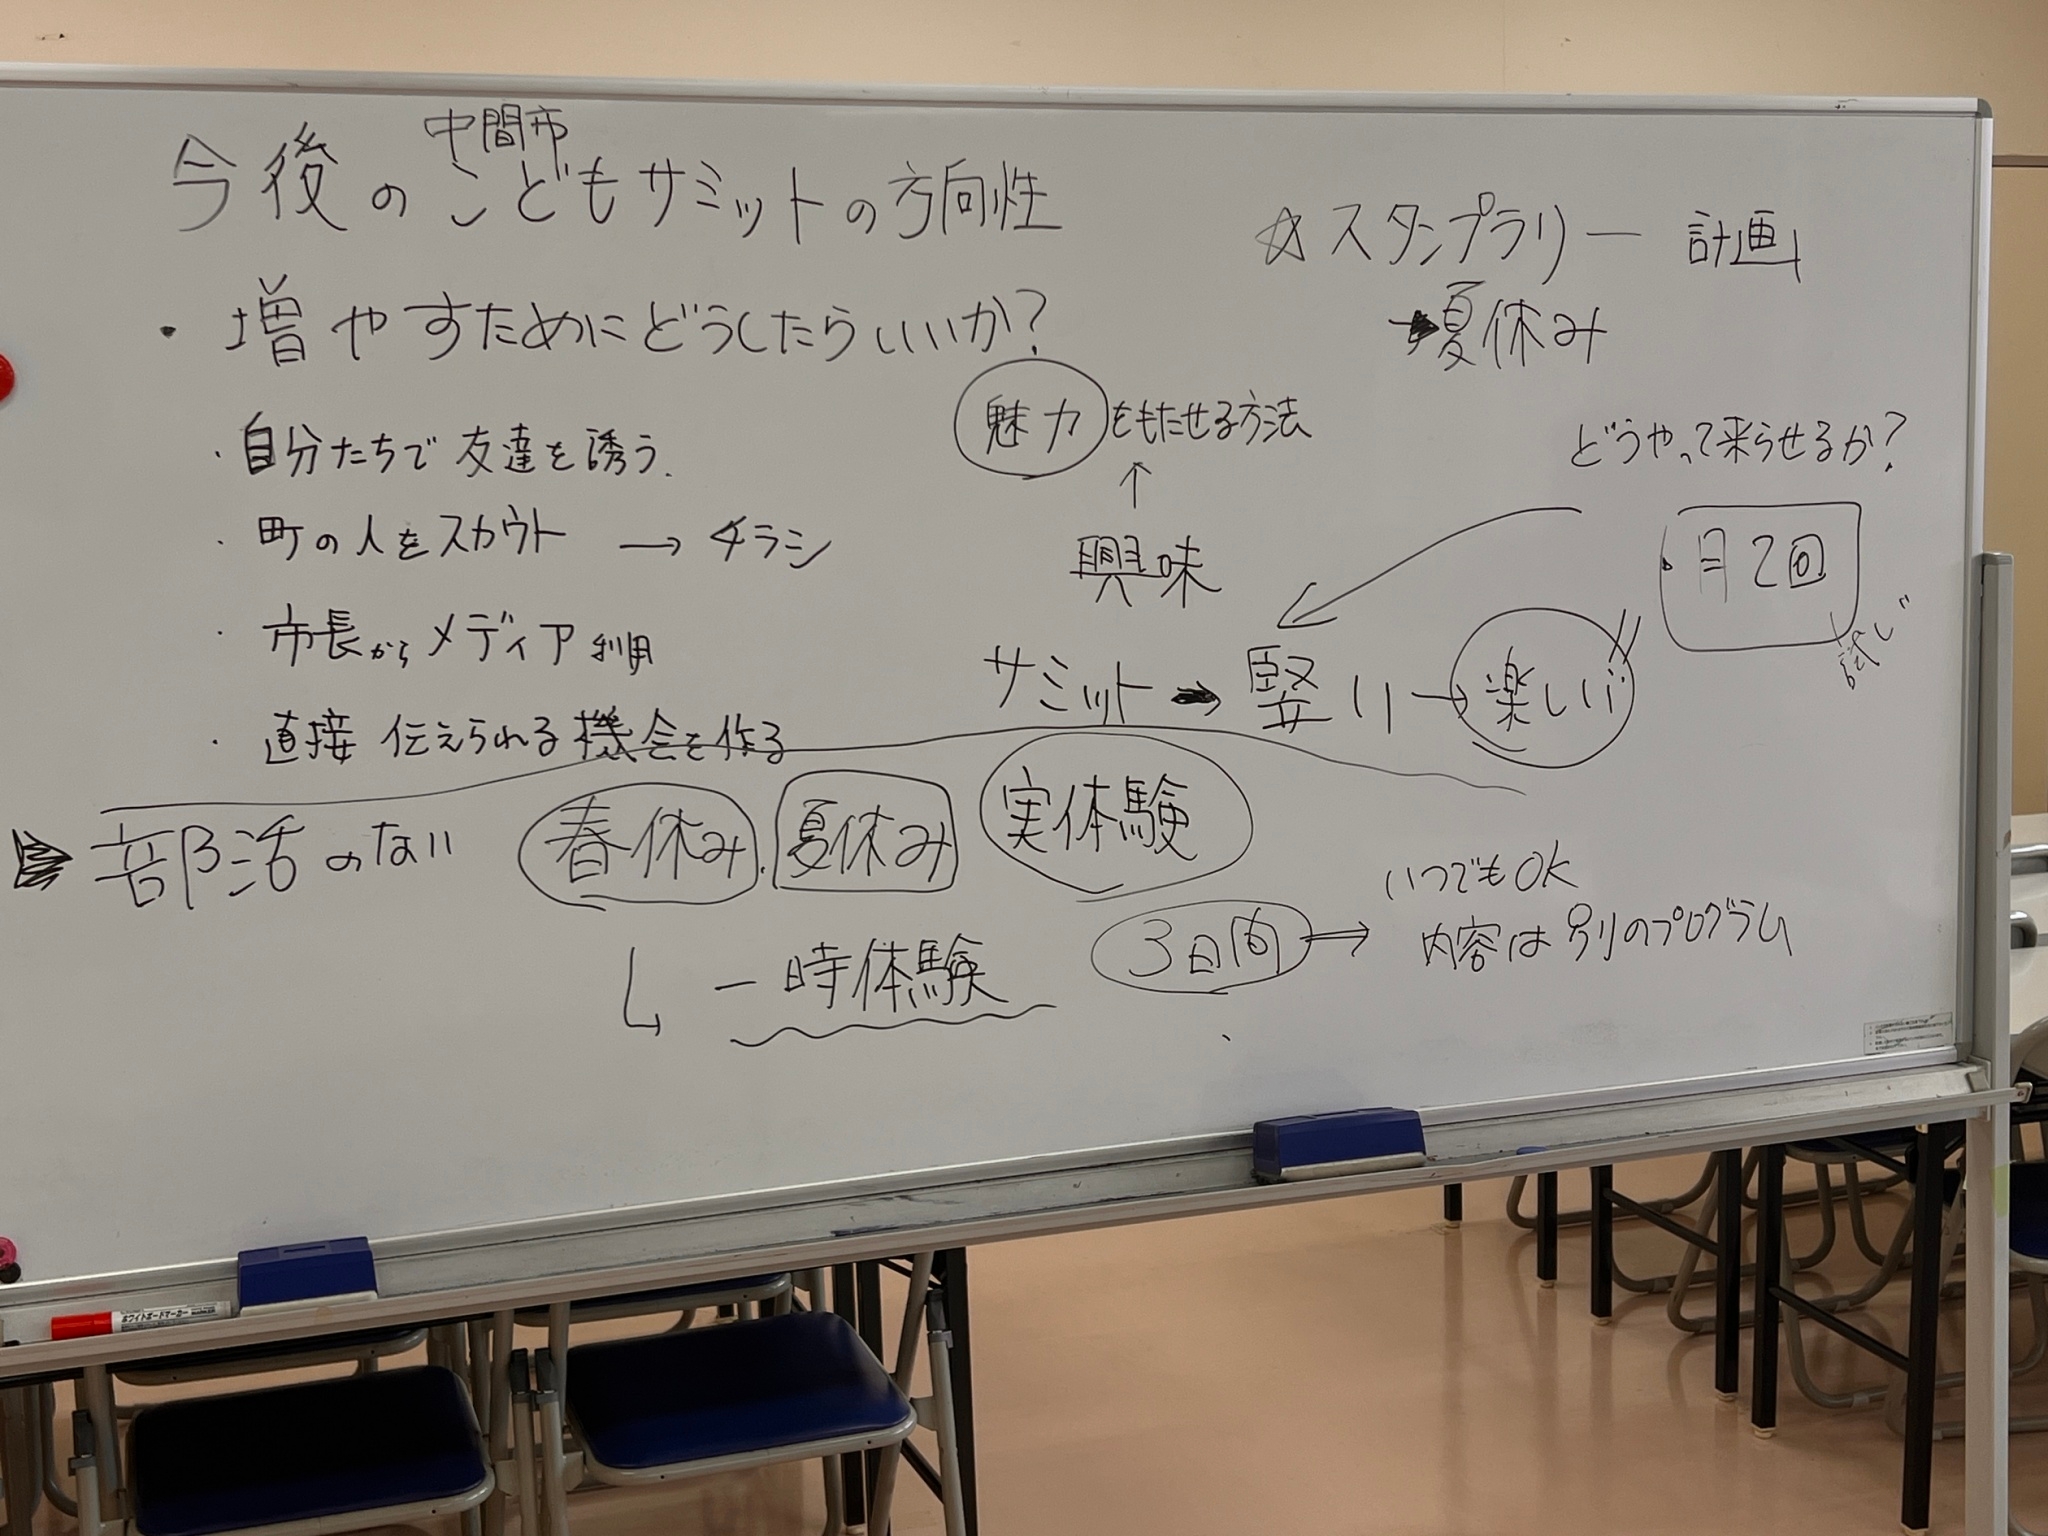 中間市
今後のこどもサミットの方向性
・増やすためにどうしたらいいか？
・自分たちで友達を誘う．
・町の人をスカウト → チラシ
・市長からメディア利用
・直接 伝えられる機会を作る
魅力をもたせる方法
↑
興味
☆スタンプラリー 計画
→夏休み
どうやって来らせるか？
・月2回
サミット → 堅い → 楽しい
部活のない 春休み．夏休み 実体験
一時体験
3日間 → いつでもOK
内容は別のプログラム
ホワイトボードマーカー